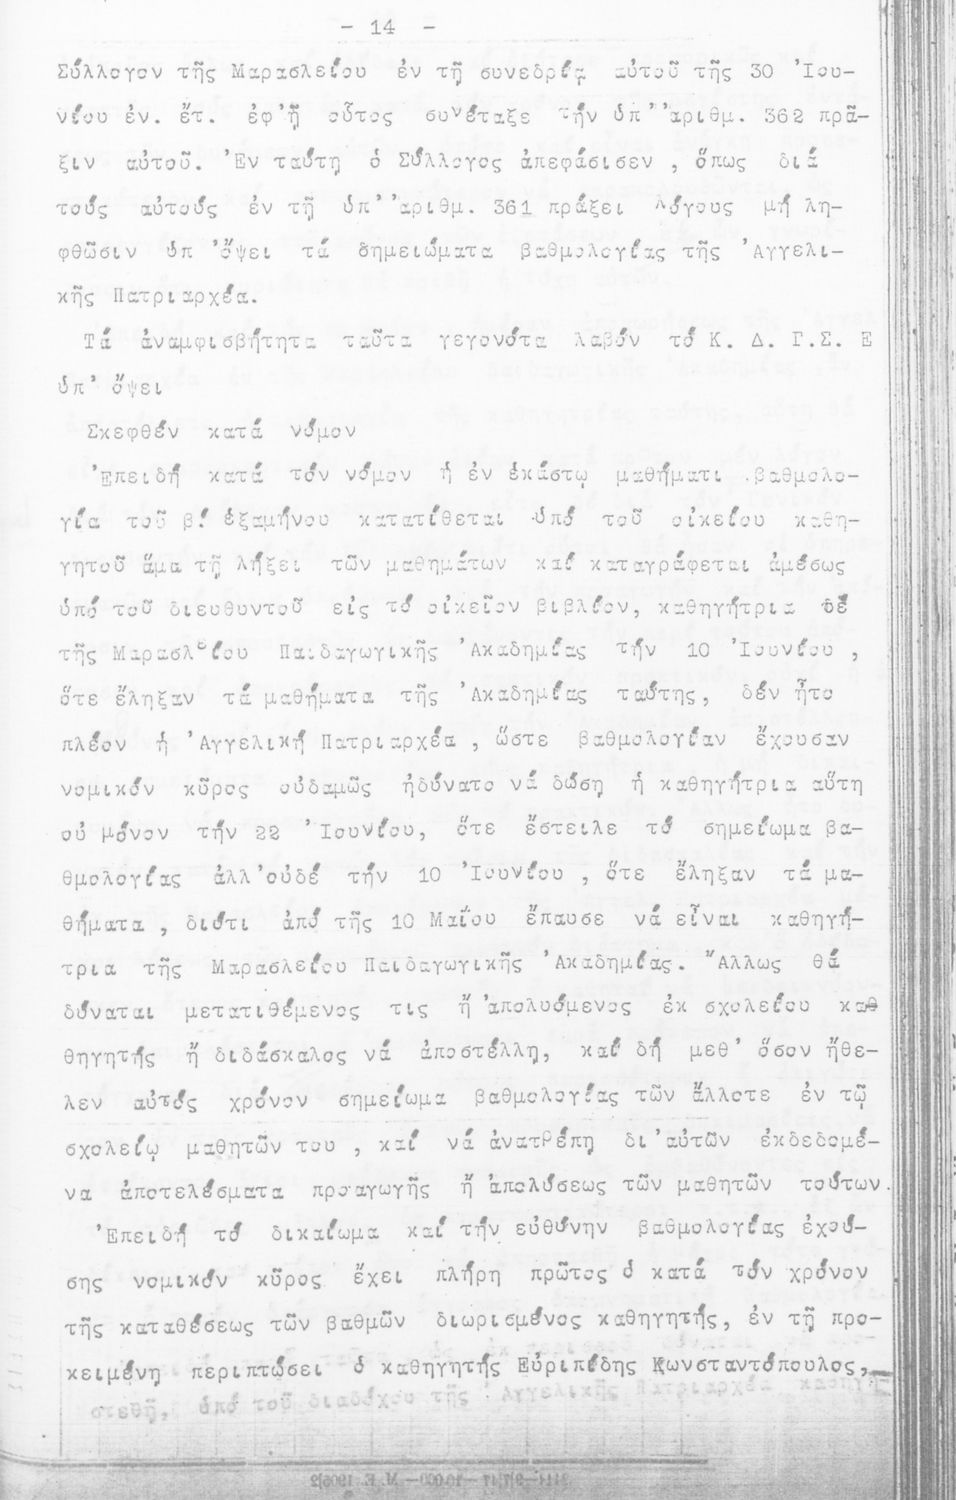 - 14 -
Σύλλογον τῆς Μαρασλείου ἐν τῇ συνεδρίᾳ αὐτοῦ τῆς 30 Ἰου-
νίου ἐν. ἔτ. ἐφ'ᾗ οὗτος συνέταξε τήν ὑπ' ἀριθμ. 362 πρᾶ-
ξιν αὐτοῦ. Ἐν ταύτῃ ὁ Σύλλογος ἀπεφάσισεν , ὅπως διά
τούς αὐτούς ἐν τῇ ὑπ' ἀριθμ. 361 πράξει λόγους μή λη-
φθῶσιν ὑπ 'ὄψει τά σημειώματα βαθμολογίας τῆς Ἀγγελι-
κῆς Πατριαρχέα.
Τά ἀναμφισβήτητα ταῦτα γεγονότα λαβόν τό Κ. Δ. Γ.Σ. Ε
ὑπ' ὄψει
Σκεφθέν κατά νόμον
Ἐπειδή κατά τόν νόμον ἡ ἐν ἑκάστῳ μαθήματι βαθμολο-
γία τοῦ β! ἑξαμήνου κατατίθεται ὑπό τοῦ οἰκείου καθη-
γητοῦ ἅμα τῇ λήξει τῶν μαθημάτων καί καταγράφεται ἀμέσως
ὑπό τοῦ διευθυντοῦ εἰς τό οἰκεῖον βιβλίον, καθηγήτρια δέ
τῆς Μαρασλείου Παιδαγωγικῆς Ἀκαδημίας τήν 10 Ἰουνίου ,
ὅτε ἔληξαν τά μαθήματα τῆς Ἀκαδημίας ταύτης, δέν ἦτο
πλέον ἡ Ἀγγελική Πατριαρχέα , ὥστε βαθμολογίαν ἔχουσαν
νομικόν κῦρος οὐδαμῶς ἠδύνατο νά δώσῃ ἡ καθηγήτρια αὕτη
οὐ μόνον τήν 22 Ἰουνίου, ὅτε ἔστειλε τό σημείωμα βα-
θμολογίας ἀλλ'οὐδέ τήν 10 Ἰουνίου , ὅτε ἔληξαν τά μα-
θήματα , διότι ἀπό τῆς 10 Μαΐου ἔπαυσε νά εἶναι καθηγή-
τρια τῆς Μαρασλείου Παιδαγωγικῆς Ἀκαδημίας. Ἄλλως θά
δύναται μετατιθέμενος τις ἤ ἀπολυόμενος ἐκ σχολείου καθ
θηγητής ἤ διδάσκαλος νά ἀποστέλλῃ, καί δή μεθ' ὅσον ἤθε-
λεν αὐτός χρόνον σημείωμα βαθμολογίας τῶν ἄλλοτε ἐν τῷ
σχολείῳ μαθητῶν του , καί νά ἀνατρέπῃ δι'αὐτῶν ἐκδεδομέ-
να ἀποτελέσματα προαγωγῆς ἤ ἀπολύσεως τῶν μαθητῶν τούτων.
Ἐπειδή τό δικαίωμα καί τήν εὐθύνην βαθμολογίας ἐχού-
σης νομικόν κῦρος ἔχει πλήρη πρῶτος ὁ κατά τόν χρόνον
τῆς καταθέσεως τῶν βαθμῶν διωρισμένος καθηγητής, ἐν τῇ προ-
κειμένῃ περιπτώσει ὁ καθηγητής Εὐριπίδης Κωνσταντόπουλος,